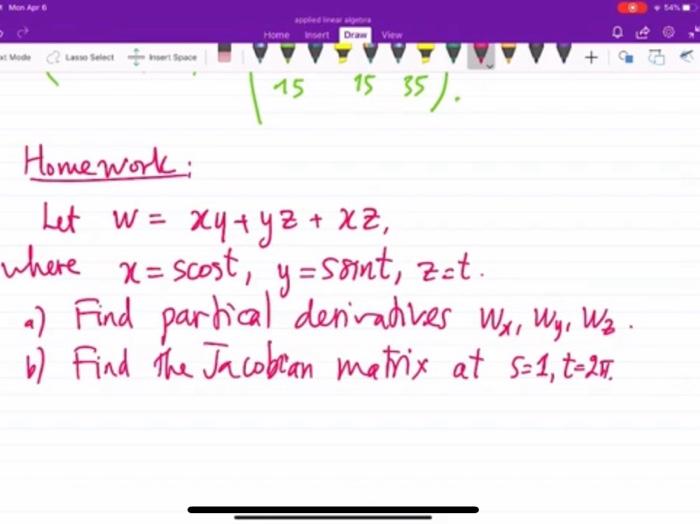 Mon Apr 6
54%
applied linear algebra
Home Insert Draw View
xt Mode Lasso Select Insert Space
15 15 35).
Homework:
Let w = xy + yz + xz,
where x = scost, y = ssint, z=t.
a) Find partical derivatives Wx, Wy, Wz.
b) Find the Jacobian matrix at s=1, t=2π.